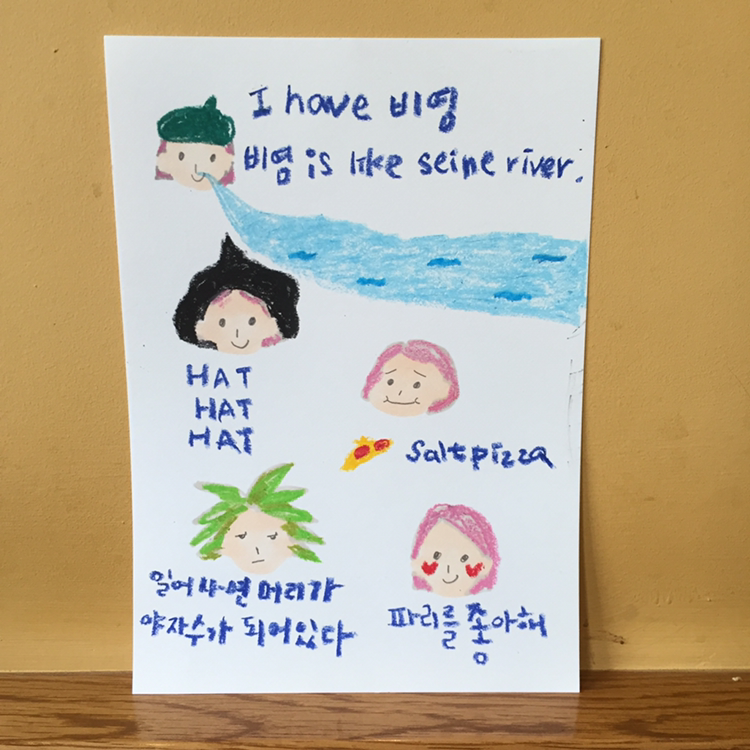 I have 비영
비염 is like seine river.
HAT
HAT
HAT
Salt pizza
일어나면 머리가
야자수가 되어있다
파리를 좋아해